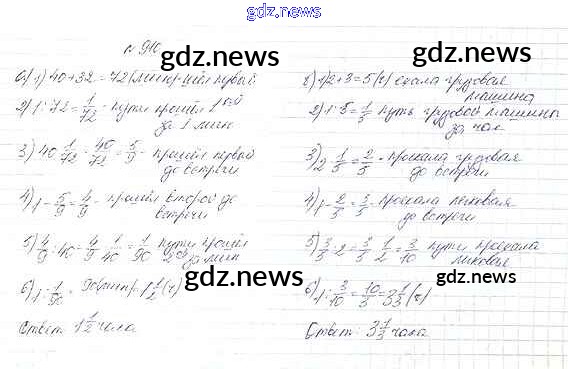 gdz.news
№ 910
gdz.news
gdz.news
а) 1) 40+32=72(мин) - шёл первый
2) 1:72=1/72 - пути прошёл 1 ый
за 1 мин
3) 40·1/72=40/72=5/9 - прошёл первый
до встречи
4) 1-5/9=4/9 - прошёл второй до
встречи
5) 4/9:40=4/9·1/40=1/90 пути прошёл
за мин
6) 1:1/90= 90(мин)=1 1/2 (ч)
Ответ: 1 1/2 часа.
б) 1) 2+3=5(ч) ехала грузовая
машина
2) 1:5=1/5 путь грузовой машины
за час
3) 2·1/5=2/5 - проехала грузовая
до встречи
4) 1-2/5=3/5 - проехала легковая
до встречи
5) 3/5:2=3/5·1/2=3/10 пути проехала
легковая
6) 1:3/10=10/3=3 1/3 (ч)
Ответ: 3 1/3 часа
gdz.news
gdz.news
gdz.news
gdz.news
gdz.news